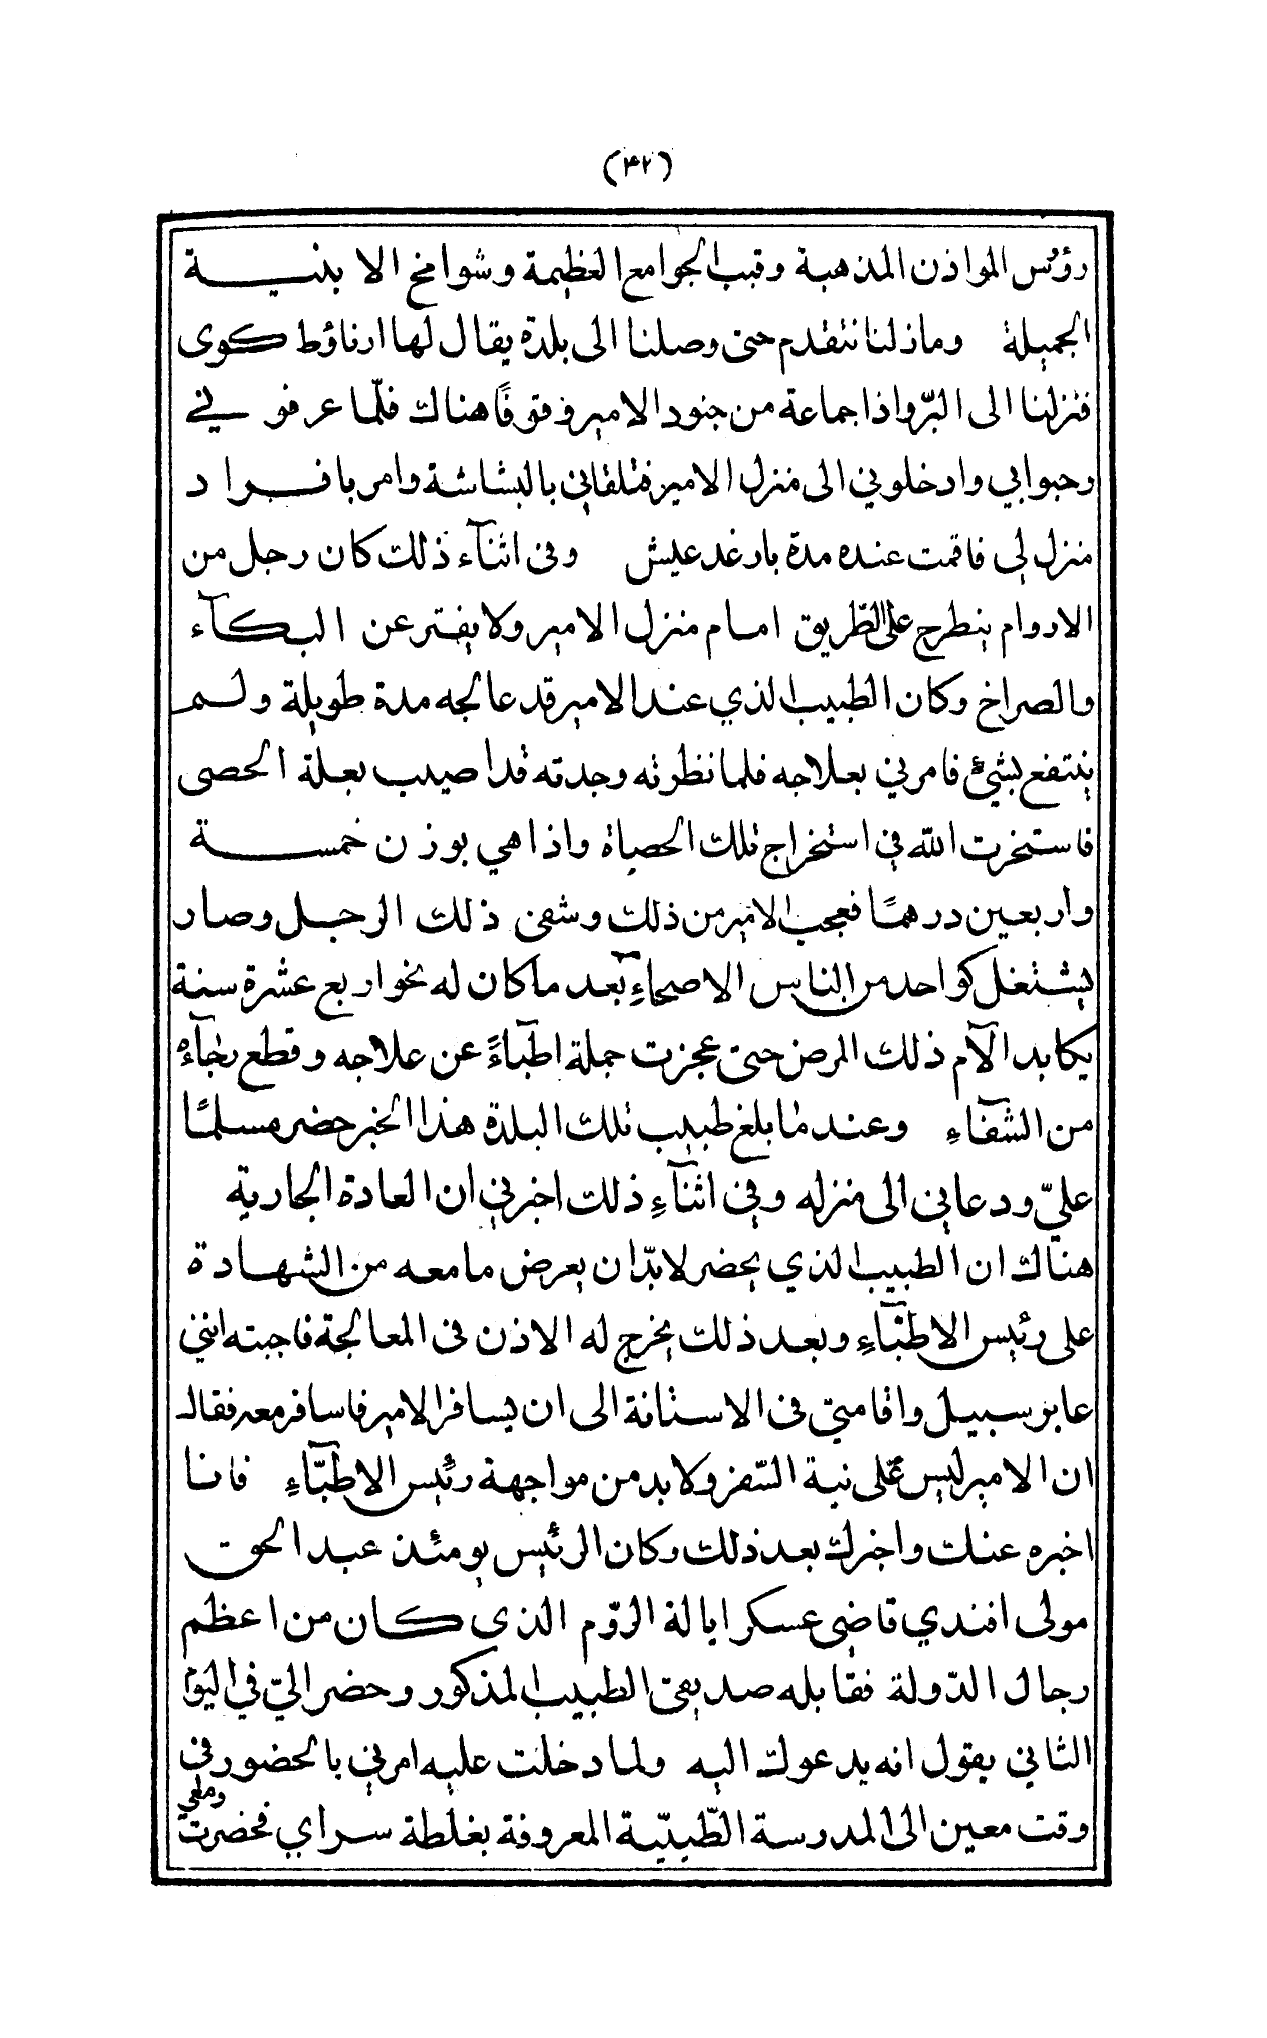 (٤٢)
رؤس المواذن المذهبة وقبب الجوامع العظيمة وشوامخ الابنية
الجميلة وماذلنا نتقدم حتى وصلنا الى بلدة يقال لها ارناؤط كوى
فنزلنا الى البرّ واذا جماعة من جنود الامير وقوفًا هناك فلّما عرفوني
وحبوابي وادخلوني الى منزل الامير فتلقاني بالبشاشة وامر بافراد
منزل لي فاقمت عنده مدة بارغد عيش وفى اثنآء ذلك كان رجل من
الاروام ينطرح على الطّريق امام منزل الامير ولا يفتر عن البكآء
والصراخ وكان الطبيب الذي عند الامير قد عالجه مدة طويلة ولم
ينتفع بشيءٍ فامرني بعلاجه فلما نظرته وجدته قد اصيب بعلة الحصى
فاستخرت الله في استخراج تلك الحصاة واذا هي بوزن خمسة
واربعين درهمًا فعجب الامير من ذلك وشفى ذلك الرجل وصار
يشتغل كواحد من الناس الاصحاءِ بعد ما كان له نحو اربع عشرة سنة
يكابد الآم ذلك المرض حتى عجزت جملة اطبآءً عن علاجه وقطع رجآءه
من الشفآءِ وعند ما بلغ طبيب تلك البلدة هذا الخبر حضر مسلمًا
عليّ ودعاني الى منزله وفي اثنآءِ ذلك اخبرني ان العادة الجارية
هناك ان الطبيب الذي يحضر لابدّ ان يعرض ما معه من الشهادة
على رئيس الاطبّآءِ وبعد ذلك يخرج له الاذن فى المعالجة فاجبته انني
عابر سبيل واقامتي فى الاستانة الى ان يسافر الامير فاسافر معه فقال
ان الامير ليس على نية السّفر ولابد من مواجهة رئيس الاطبّآءِ فانا
اخبره عنك واخبرك بعد ذلك وكان الرئيس يومئذ عبد الحق
مولى افندي قاضى عسكر ايالة الرّوم الذى كان من اعظم
رجال الدّولة فقابله صديقى الطبيب المذكور وحضر اليّ في اليوم
الثاني يقول انه يدعوك اليه ولما دخلت عليه امرني بالحضور فى
وقت معين الى المدرسة الطّبيّة المعروفة بغلطة سراي فحضرت ومعي